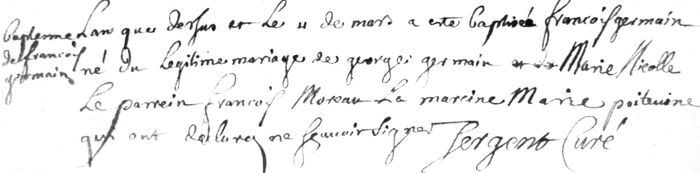 baptemme
de francois
germain
Lan que dessus et le 11 de mars a este baptisé francois germain
né du legitime mariage de george germain et de Marie Nicolle
Le parrein francois Moreau La mareine Marie poitevine
qui ont declarez ne scavoir signer Sergent Curé